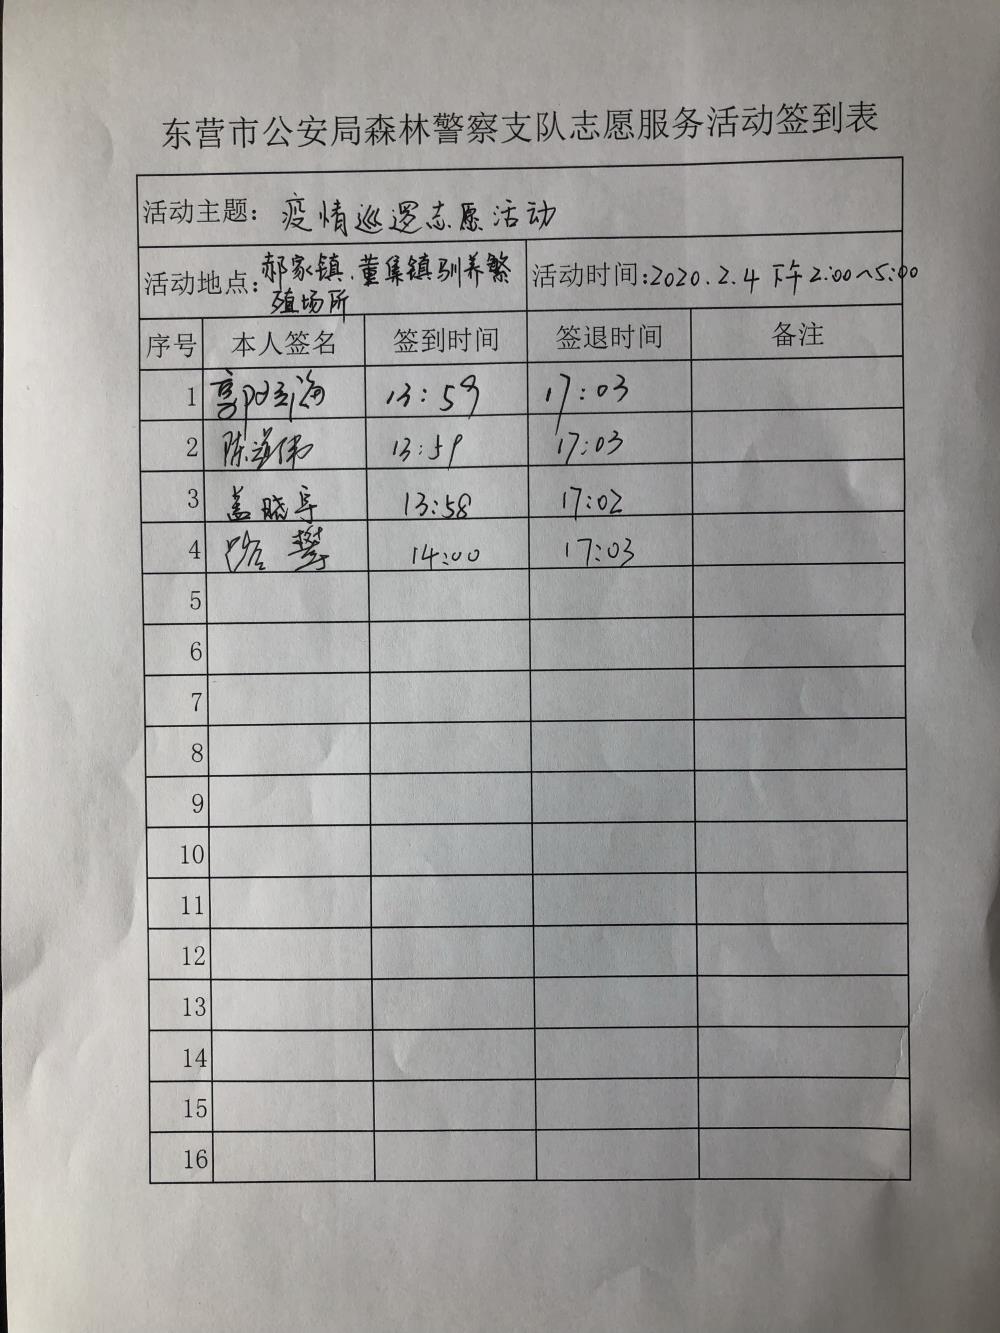 东营市公安局森林警察支队志愿服务活动签到表
活动主题：疫情巡逻志愿活动
活动地点：郝家镇、董集镇驯养繁
殖场所
活动时间：2020.2.4 下午2:00~5:00
序号 本人签名 签到时间 签退时间 备注
1 郭 海 13:59 17:03
2 陈 伟 13:59 17:03
3 盖晓宇 13:58 17:02
4 路攀 14:00 17:03
5
6
7
8
9
10
11
12
13
14
15
16